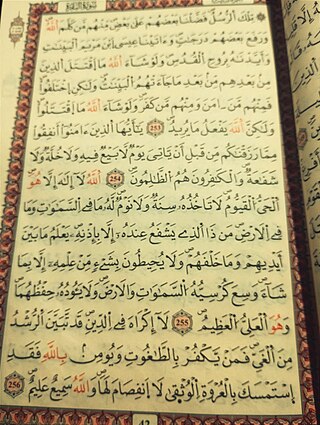 سُورَةُ البَقَرَةِ
تِلْكَ اَلرُّسُلُ فَضَّلْنَا بَعْضَهُمْ عَلَىٰ بَعْضٍ مِّنْهُم مَّن كَلَّمَ اَللَّهُ
وَرَفَعَ بَعْضَهُمْ دَرَجَٰتٍ وَءَاتَيْنَا عِيسَى اَبْنَ مَرْيَمَ اَلْبَيِّنَٰتِ
وَأَيَّدْنَٰهُ بِرُوحِ اِلْقُدُسِ وَلَوْ شَآءَ اَللَّهُ مَا اَقْتَتَلَ اَلذِينَ
مِنۢ بَعْدِهِم مِّنۢ بَعْدِ مَا جَآءَتْهُمُ اُلْبَيِّنَٰتُ وَلَٰكِنِ اِخْتَلَفُواْ
فَمِنْهُم مَّنَ اٰمَنَ وَمِنْهُم مَّن كَفَرَ وَلَوْ شَآءَ اَللَّهُ مَا اَقْتَتَلُواْ
وَلَٰكِنَّ اَللَّهَ يَفْعَلُ مَا يُرِيدُ 253 يَٰٓأَيُّهَا اَلذِينَ ءَامَنُوٓاْ أَنفِقُواْ
مِمَّا رَزَقْنَٰكُم مِّن قَبْلِ أَنْ يَّاتِيَ يَوْمٌ لَّا بَيْعٌ فِيهِ وَلَا خُلَّةٌ وَلَا
شَفَٰعَةٌ وَالْكَٰفِرُونَ هُمُ اُلظَّٰلِمُونَ 254 اَللَّهُ لَآ إِلَٰهَ إِلَّا هُوَ
اَلْحَيُّ اُلْقَيُّومُ لَا تَاخُذُهُۥ سِنَةٌ وَلَا نَوْمٌ لَّهُۥ مَا فِي اِلسَّمَٰوَٰتِ وَمَا
فِي اِلَارْضِ مَن ذَا اَلذِي يَشْفَعُ عِندَهُۥٓ إِلَّا بِإِذْنِهِۦ يَعْلَمُ مَا بَيْنَ
أَيْدِيهِمْ وَمَا خَلْفَهُمْ وَلَا يُحِيطُونَ بِشَيْءٍ مِّنْ عِلْمِهِۦٓ إِلَّا بِمَا
شَآءَ وَسِعَ كُرْسِيُّهُ اُلسَّمَٰوَٰتِ وَالَارْضَ وَلَا يَـُٔودُهُۥ حِفْظُهُمَا
وَهُوَ اَلْعَلِيُّ اُلْعَظِيمُ 255 لَآ إِكْرَاهَ فِي اِلدِّينِ قَد تَّبَيَّنَ اَلرُّشْدُ
مِنَ اَلْغَيِّ فَمَنْ يَّكْفُرْ بِالطَّٰغُوتِ وَيُومِنۢ بِاللَّهِ فَقَدِ
اِسْتَمْسَكَ بِالْعُرْوَةِ اِلْوُثْقَىٰ لَا اَنفِصَامَ لَهَا وَاللَّهُ سَمِيعٌ عَلِيمٌ 256
42